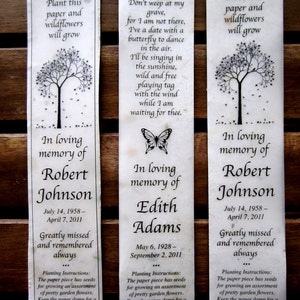 Plant this
paper and
wildflowers
will grow
In loving
memory of
Robert
Johnson
July 14, 1958 –
April 7, 2011
Greatly missed
and remembered
always
Planting Instructions:
The paper piece has seeds
for growing an assortment
of pretty garden flowers.
Don't weep at my
grave,
for I am not there,
I've a date with a
butterfly to dance
in the air.
I'll be singing in
the sunshine,
wild and free
playing tag
with the wind
while I am
waiting for thee.
In loving
memory of
Edith
Adams
May 6, 1928 –
September 2, 2011
Planting Instructions:
The paper piece has seeds
for growing an assortment
of pretty garden flowers.
paper and
wildflowers
will grow
In loving
memory of
Robert
Johnson
July 14, 1958 –
April 7, 2011
Greatly missed
and remembered
always
Planting Instructions:
The paper piece has seeds
for growing an assortment
of pretty garden flowers.